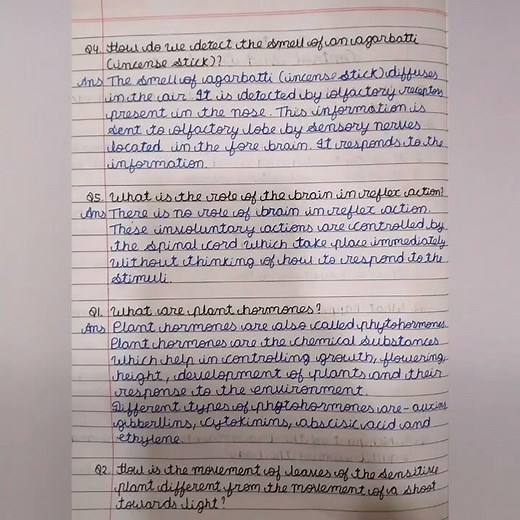 Q4. How do we detect the smell of an agarbatti
(incense stick)?
Ans The smell of agarbatti (incense stick) diffuses
in the air. It is detected by olfactory receptors
present in the nose. This information is
sent to olfactory lobe by sensory nerves
located in the fore brain. It responds to the
information.
Q5. What is the role of the brain in reflex action?
Ans There is no role of brain in reflex action.
These involuntary actions are controlled by
the spinal cord which take place immediately
without thinking of how to respond to the
stimuli.
Q1. What are plant hormones?
Ans Plant hormones are also called phytohormones.
Plant hormones are the chemical substances
which help in controlling growth, flowering,
height, development of plants and their
response to the environment.
Different types of phytohormones are - auxins
gibberllins, cytokinins, abscisic acid and
ethylene.
Q2. How is the movement of leaves of the sensitive
plant different from the movement of a shoot
towards light?